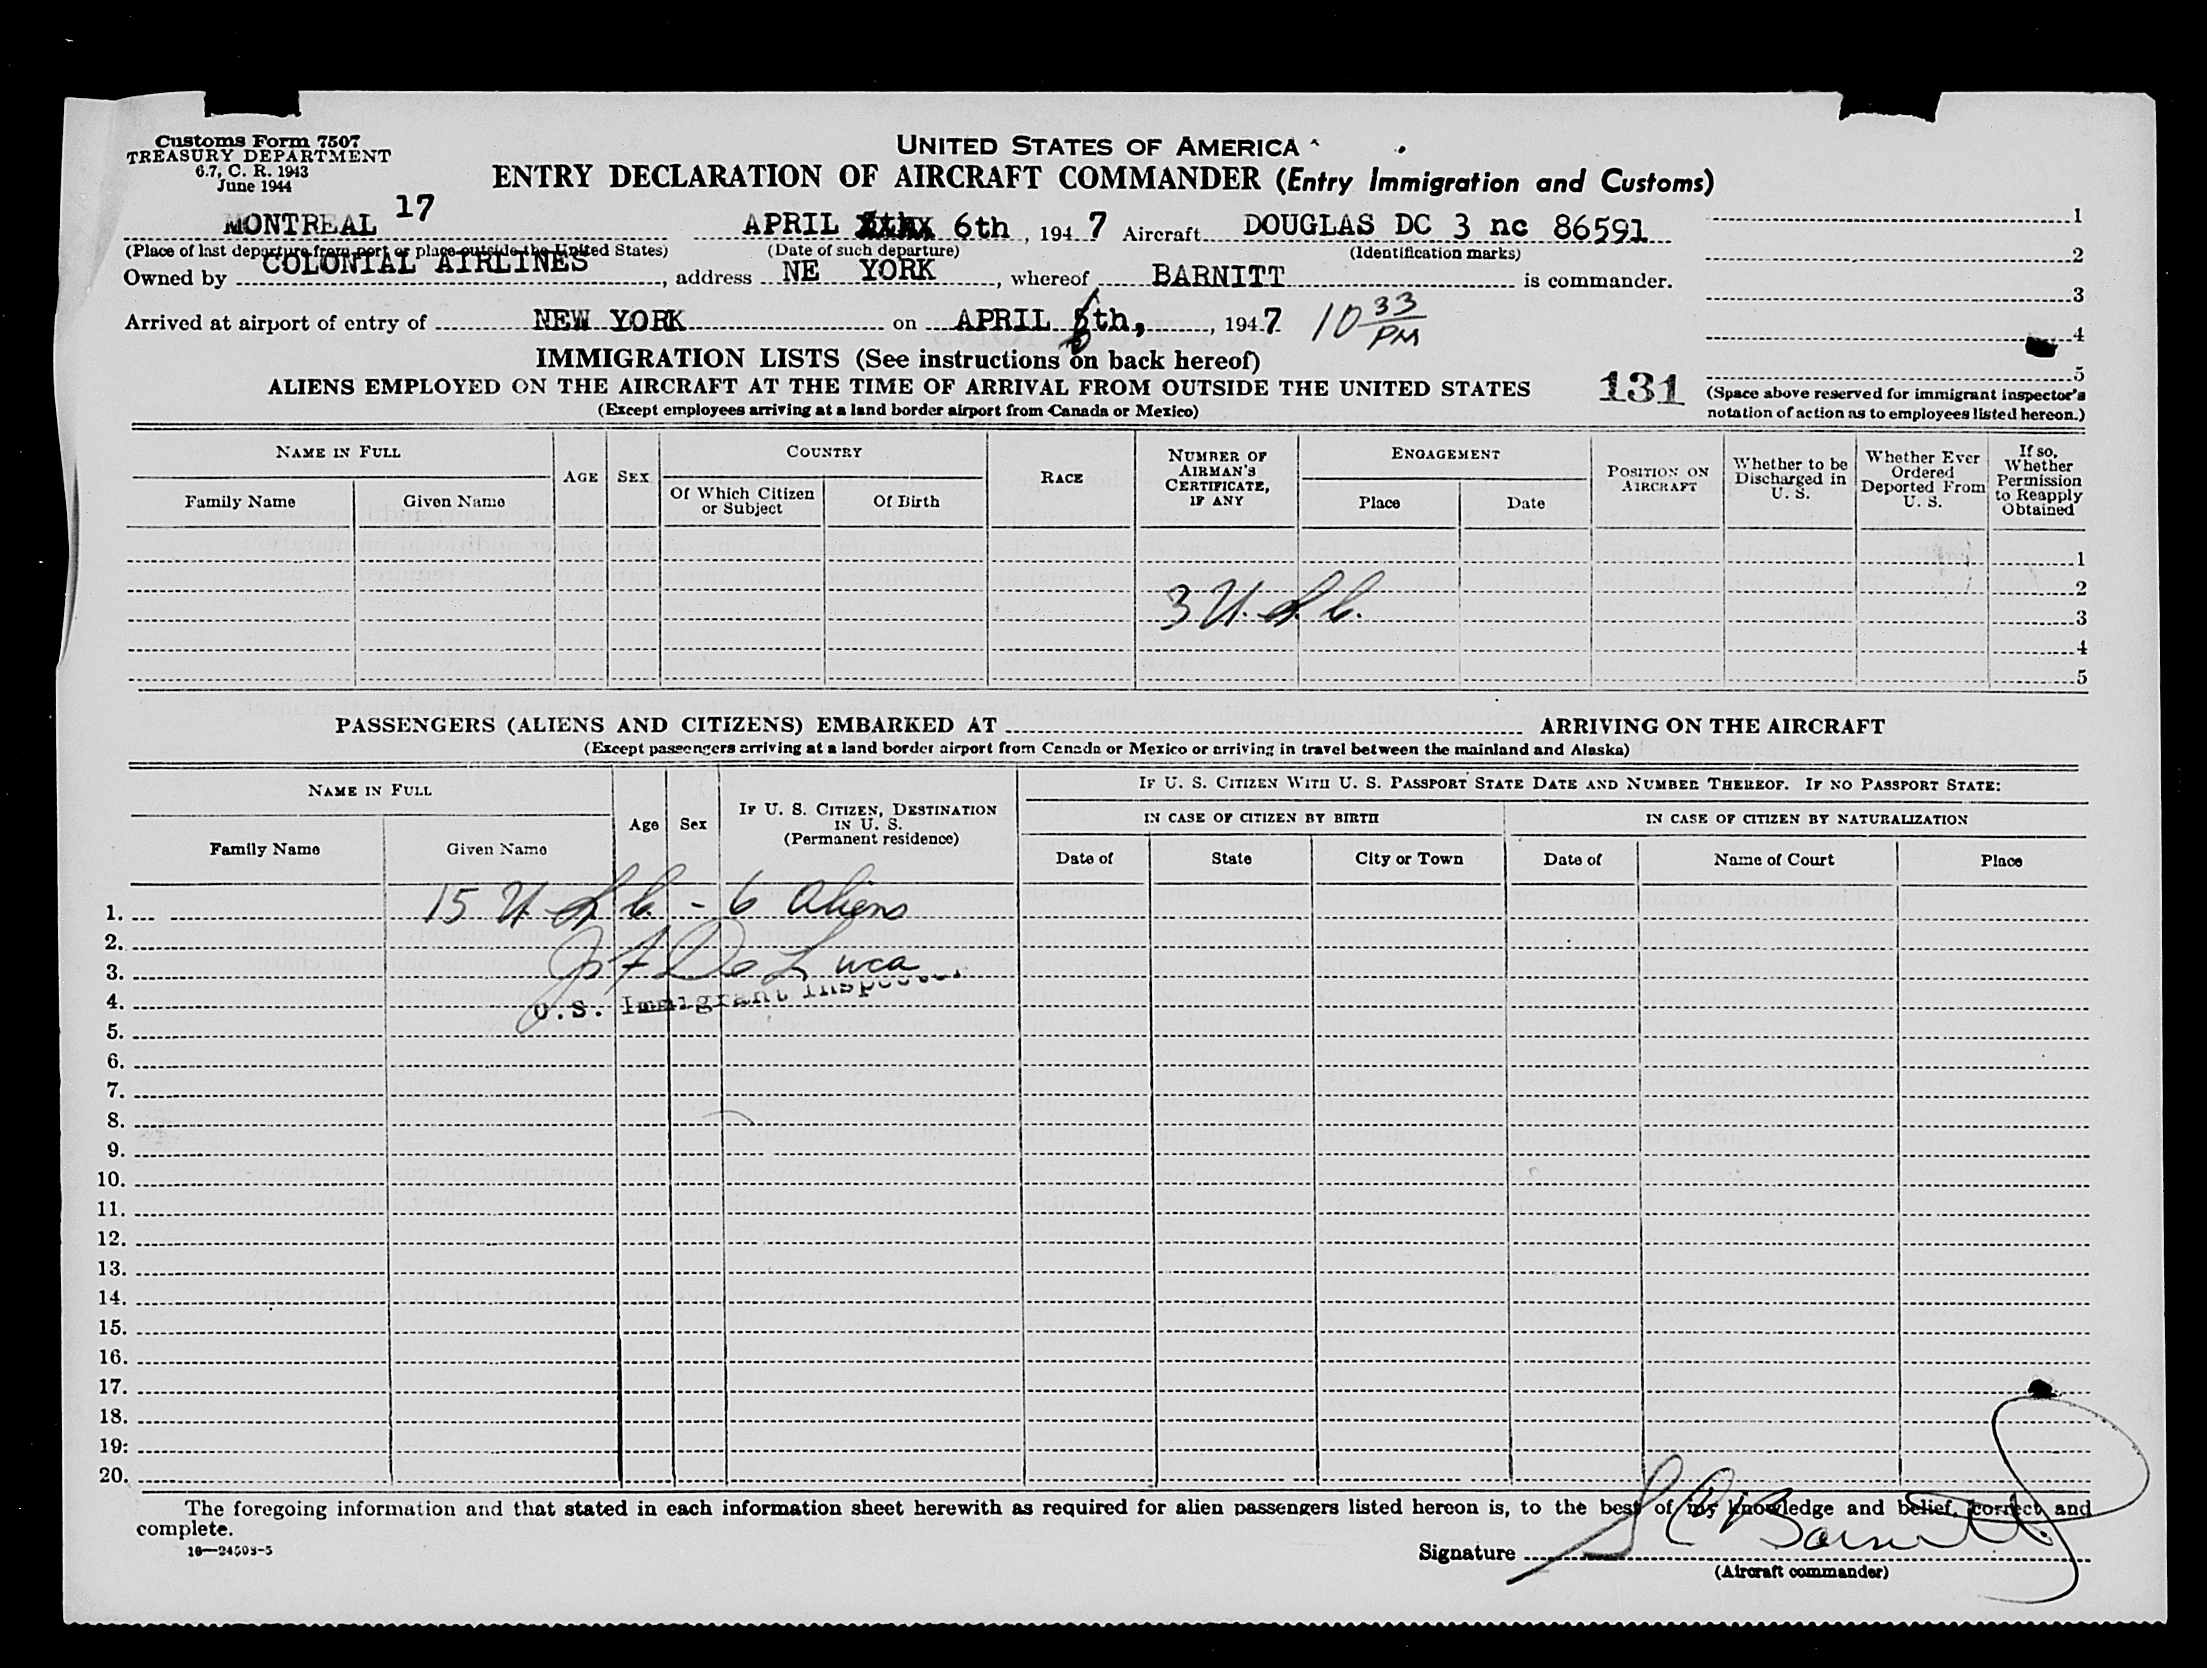 Customs Form 7507
TREASURY DEPARTMENT
6.7, C. R. 1943
June 1944
UNITED STATES OF AMERICA
ENTRY DECLARATION OF AIRCRAFT COMMANDER (Entry Immigration and Customs)
MONTREAL 17 APRIL 6th, 1947 Aircraft DOUGLAS DC 3 nc 86591
(Place of last departure from port or place outside the United States) (Date of such departure) (Identification marks)
Owned by COLONIAL AIRLINES, address NE YORK, whereof BARNITT is commander.
Arrived at airport of entry of NEW YORK on APRIL 6th, 1947 10 33 PM
1
2
3
4
5
(Space above reserved for immigrant inspector's notation of action as to employees listed hereon.)
IMMIGRATION LISTS (See instructions on back hereof)
ALIENS EMPLOYED ON THE AIRCRAFT AT THE TIME OF ARRIVAL FROM OUTSIDE THE UNITED STATES 131
(Except employees arriving at a land border airport from Canada or Mexico)
NAME IN FULL AGE SEX COUNTRY RACE NUMBER OF AIRMAN'S CERTIFICATE, IF ANY ENGAGEMENT POSITION ON AIRCRAFT Whether to be Discharged in U. S. Whether Ever Ordered Deported From U. S. If so, Whether Permission to Reapply Obtained
Family Name Given Name Of Which Citizen or Subject Of Birth Place Date
1
2
3 U.S.C. 3
4
5
PASSENGERS (ALIENS AND CITIZENS) EMBARKED AT ARRIVING ON THE AIRCRAFT
(Except passengers arriving at a land border airport from Canada or Mexico or arriving in travel between the mainland and Alaska)
NAME IN FULL Age Sex IF U. S. CITIZEN, DESTINATION IN U. S. (Permanent residence) IF U. S. CITIZEN WITH U. S. PASSPORT STATE DATE AND NUMBER THEREOF. IF NO PASSPORT STATE:
IN CASE OF CITIZEN BY BIRTH IN CASE OF CITIZEN BY NATURALIZATION
Family Name Given Name Date of State City or Town Date of Name of Court Place
1. 15 U.S.C. - 6 Aliens
2.
3. J F De Luca
4. U.S. Immigrant Inspector
5.
6.
7.
8.
9.
10.
11.
12.
13.
14.
15.
16.
17.
18.
19.
20.
The foregoing information and that stated in each information sheet herewith as required for alien passengers listed hereon is, to the best of my knowledge and belief, correct and
complete.
16—24503-5
Signature S C Barnitt
(Aircraft commander)